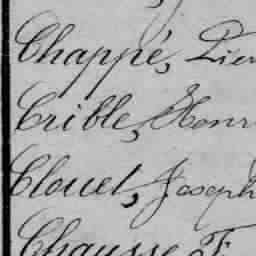 Chappé, Pier
Crible, Henr
Clouet, Joseph
Chausse F.